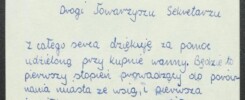 Drogi Towarzyszu Sekretarzu
Z całego serca dziękuję za pomoc
udzieloną przy kupnie wanny. Będzie to
pierwszy stopień prowadzący do porów-
nania miasta ze wsią, i pierwsza